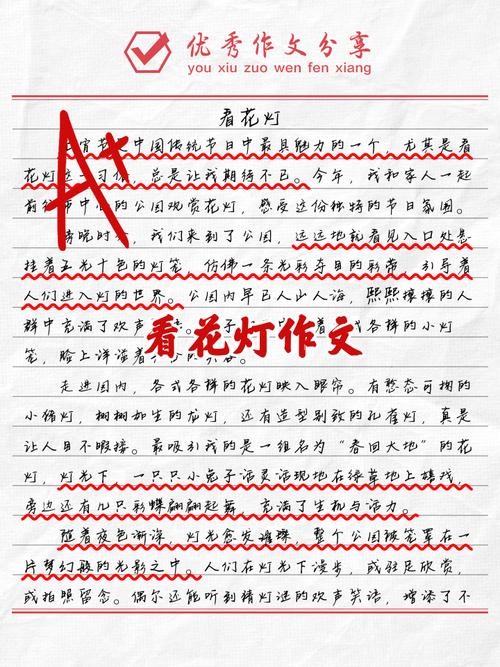 优秀作文分享
you xiu zuo wen fen xiang
看花灯
宵节是中国传统节日中最具魅力的一个，尤其是看
花灯这一习俗，总是让我期待不已。今年，我和家人一起
前往市中心的公园观赏花灯，感受这份独特的节日氛围。
傍晚时分，我们来到了公园，远远地就看见入口处悬
挂着五光十色的灯笼，仿佛一条光彩夺目的彩带，引导着
人们进入灯的世界。公园内早已人山人海，熙熙攘攘的人
群中充满了欢声
各样的小灯
笼，脸上洋溢着
看花灯作文
走进园内，各式各样的花灯映入眼帘。有憨态可掬的
小猪灯，栩栩如生的龙灯，还有造型别致的孔雀灯，真是
让人目不暇接。最吸引我的是一组名为“春回大地”的花
灯，灯光下，一只只小兔子活灵活现地在绿草地上嬉戏，
旁边还有几只彩蝶翩翩起舞，充满了生机与活力。
随着夜色渐深，灯光愈发璀璨，整个公园被笼罩在一
片梦幻般的光影之中。人们在灯光下漫步，或驻足欣赏，
或拍照留念。偶尔还能听到猜灯谜的欢声笑语，增添了不
A+